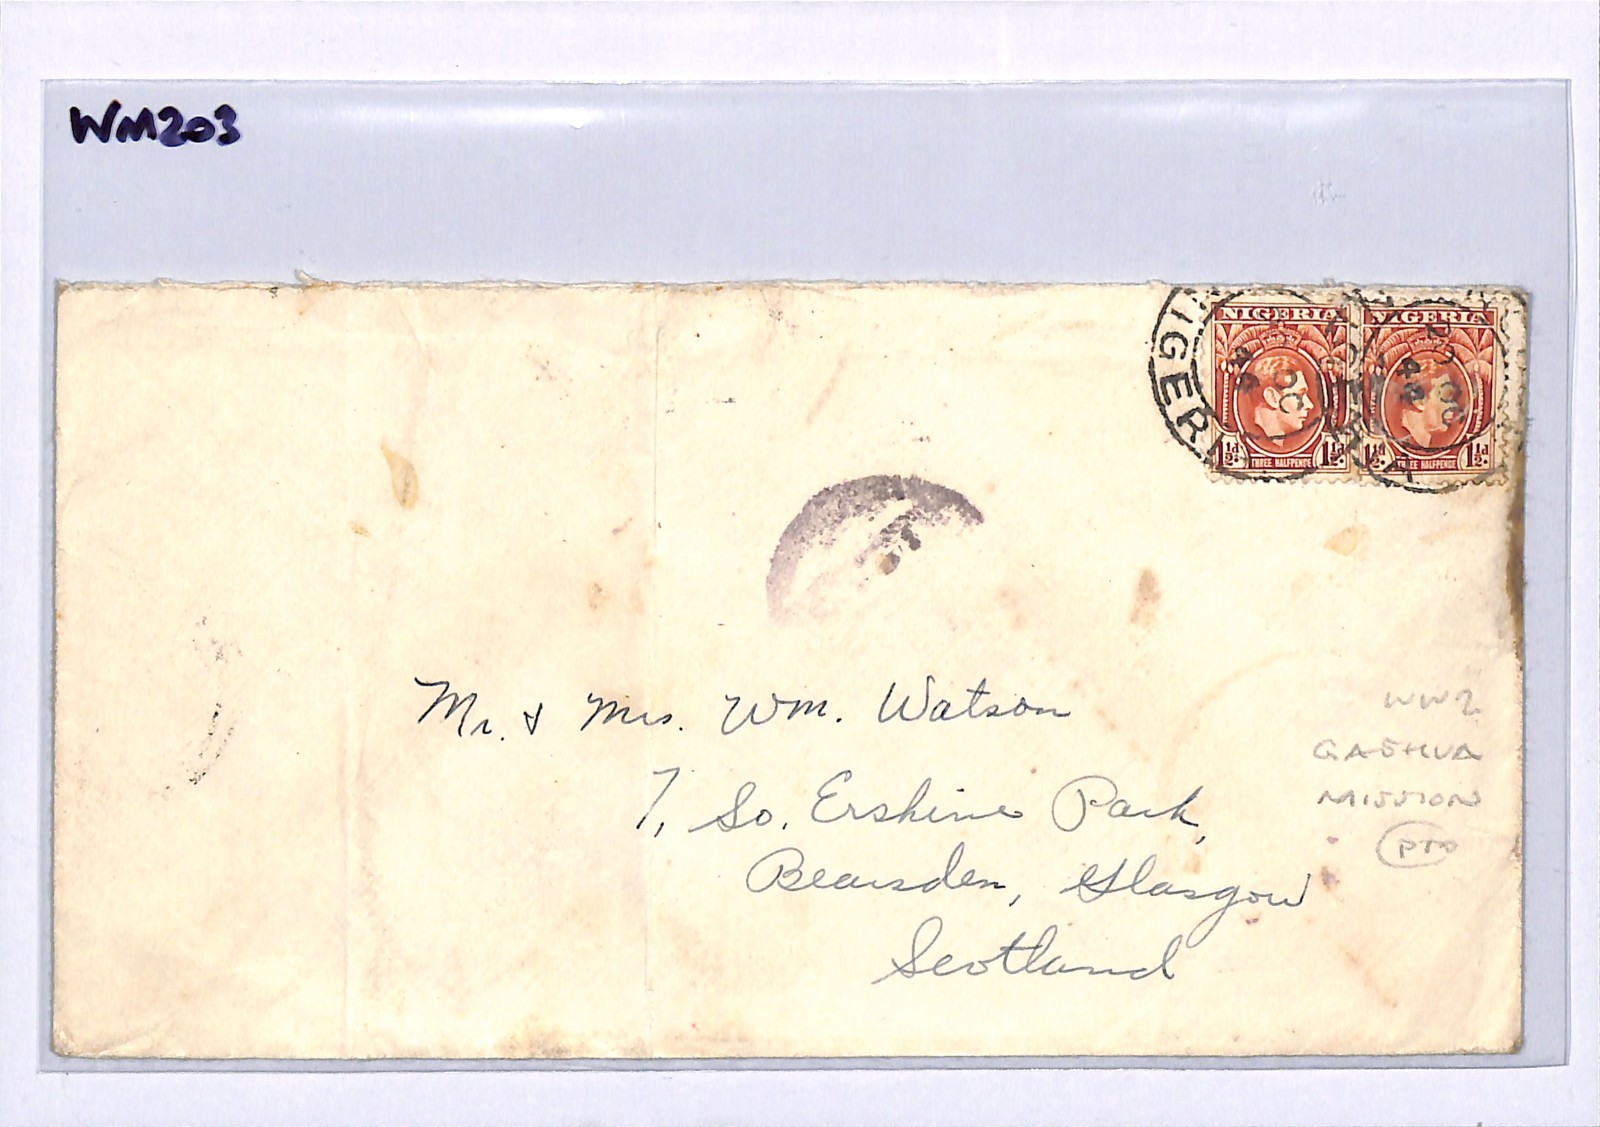 WM203
NIGERIA NIGERIA
1½d. THREE HALFPENCE 1½d. 1½d. THREE HALFPENCE 1½d.
IGERI
OC
Mr. & Mrs. Wm. Watson
7, So. Erskine Park,
Bearsden, Glasgow
Scotland
WW2
GASHUA
MISSION
PTO